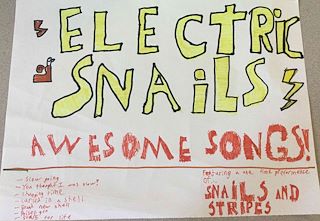 ELECTRIC
SNAILS
AWESOME SONGS!
- Slow going
- You thought I was slow?
- time
- in a shell
- new shell
-
- for life
Featuring a one time performance
of
SNAILS AND
STRIPES